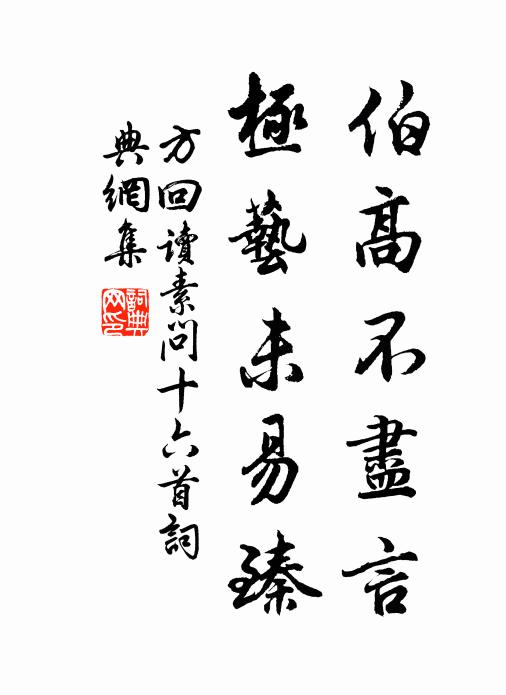 伯高不盡言
極藝未易臻
方回讀素問十六首詞
典網集
詞典網印